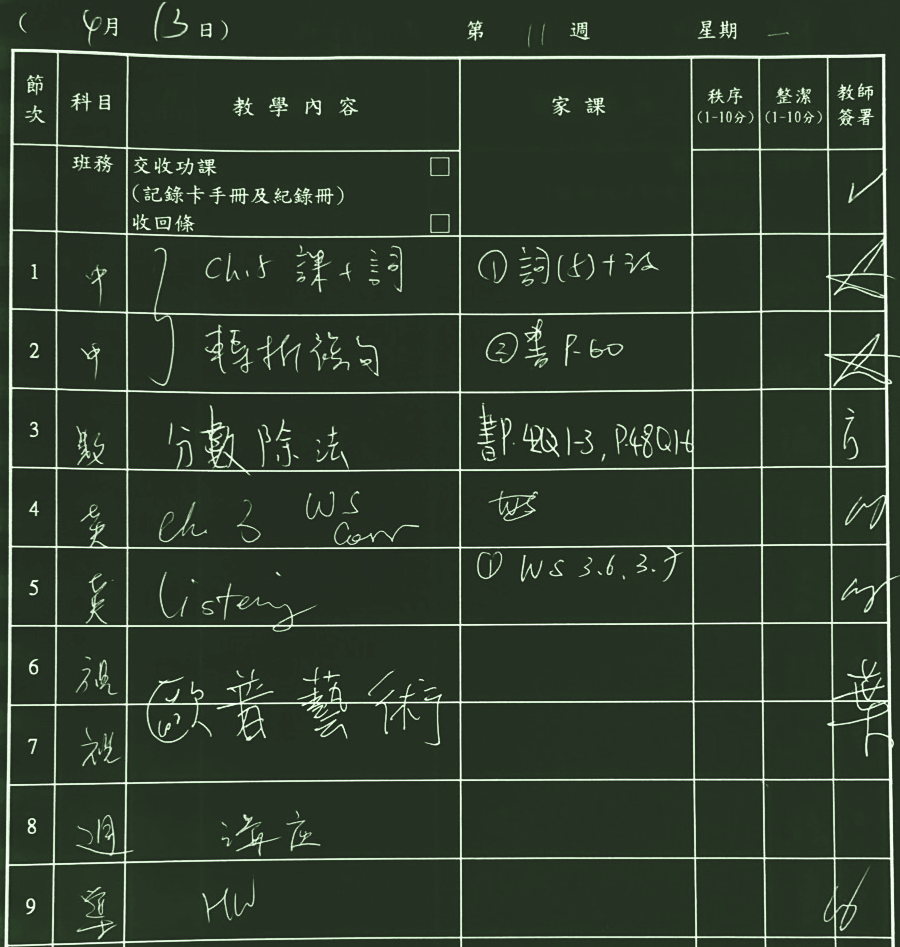 ( 4月 13日) 第 11 週 星期 一
節次 科目 教學內容 家課 秩序(1-10分) 整潔(1-10分) 教師簽署
班務 交收功課 □
(記錄卡手冊及紀錄冊)
收回條 □
1 中 Ch.5 課+詞 ①詞(5)+
2 中 轉折複句 ②書 P.60
3 數 分數除法 書P.42Q1-3, P.48Q1-6
4 英 ch. 3 WS Corr
5 英 Listening ① WS 3.6, 3.7
6 視 藝術
7 視
8 週 講座
9 HW